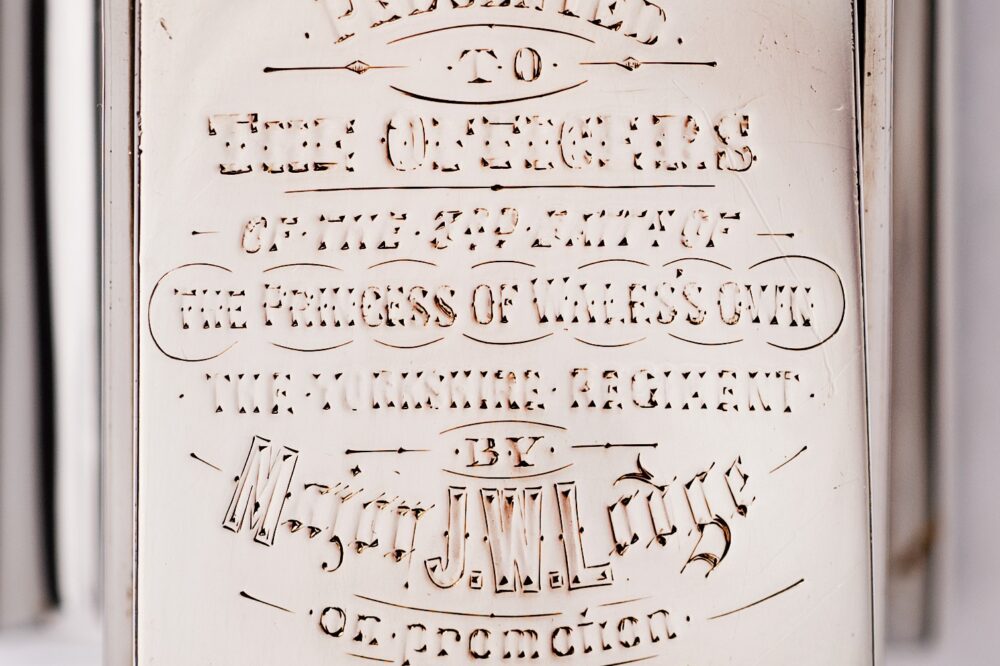 PRESENTED
·TO·
THE OFFICERS
OF·THE·3RD·BATTN OF
THE PRINCESS OF WALES'S OWN
·THE·YORKSHIRE·REGIMENT·
·BY·
Major J.W.Lodge
·on·promotion·